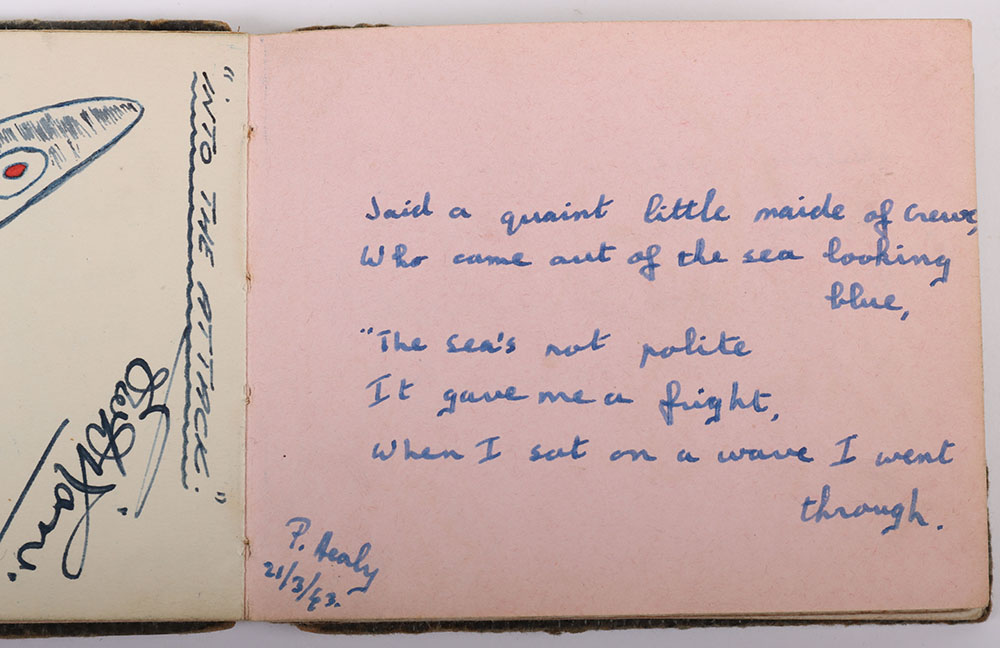 "INTO THE ATTACK."
Said a quaint little maide of Crewe,
Who came out of the sea looking
blue,
"The sea's not polite
It gave me a fright,
When I sat on a wave I went
through.
P. Healy
21/3/43.